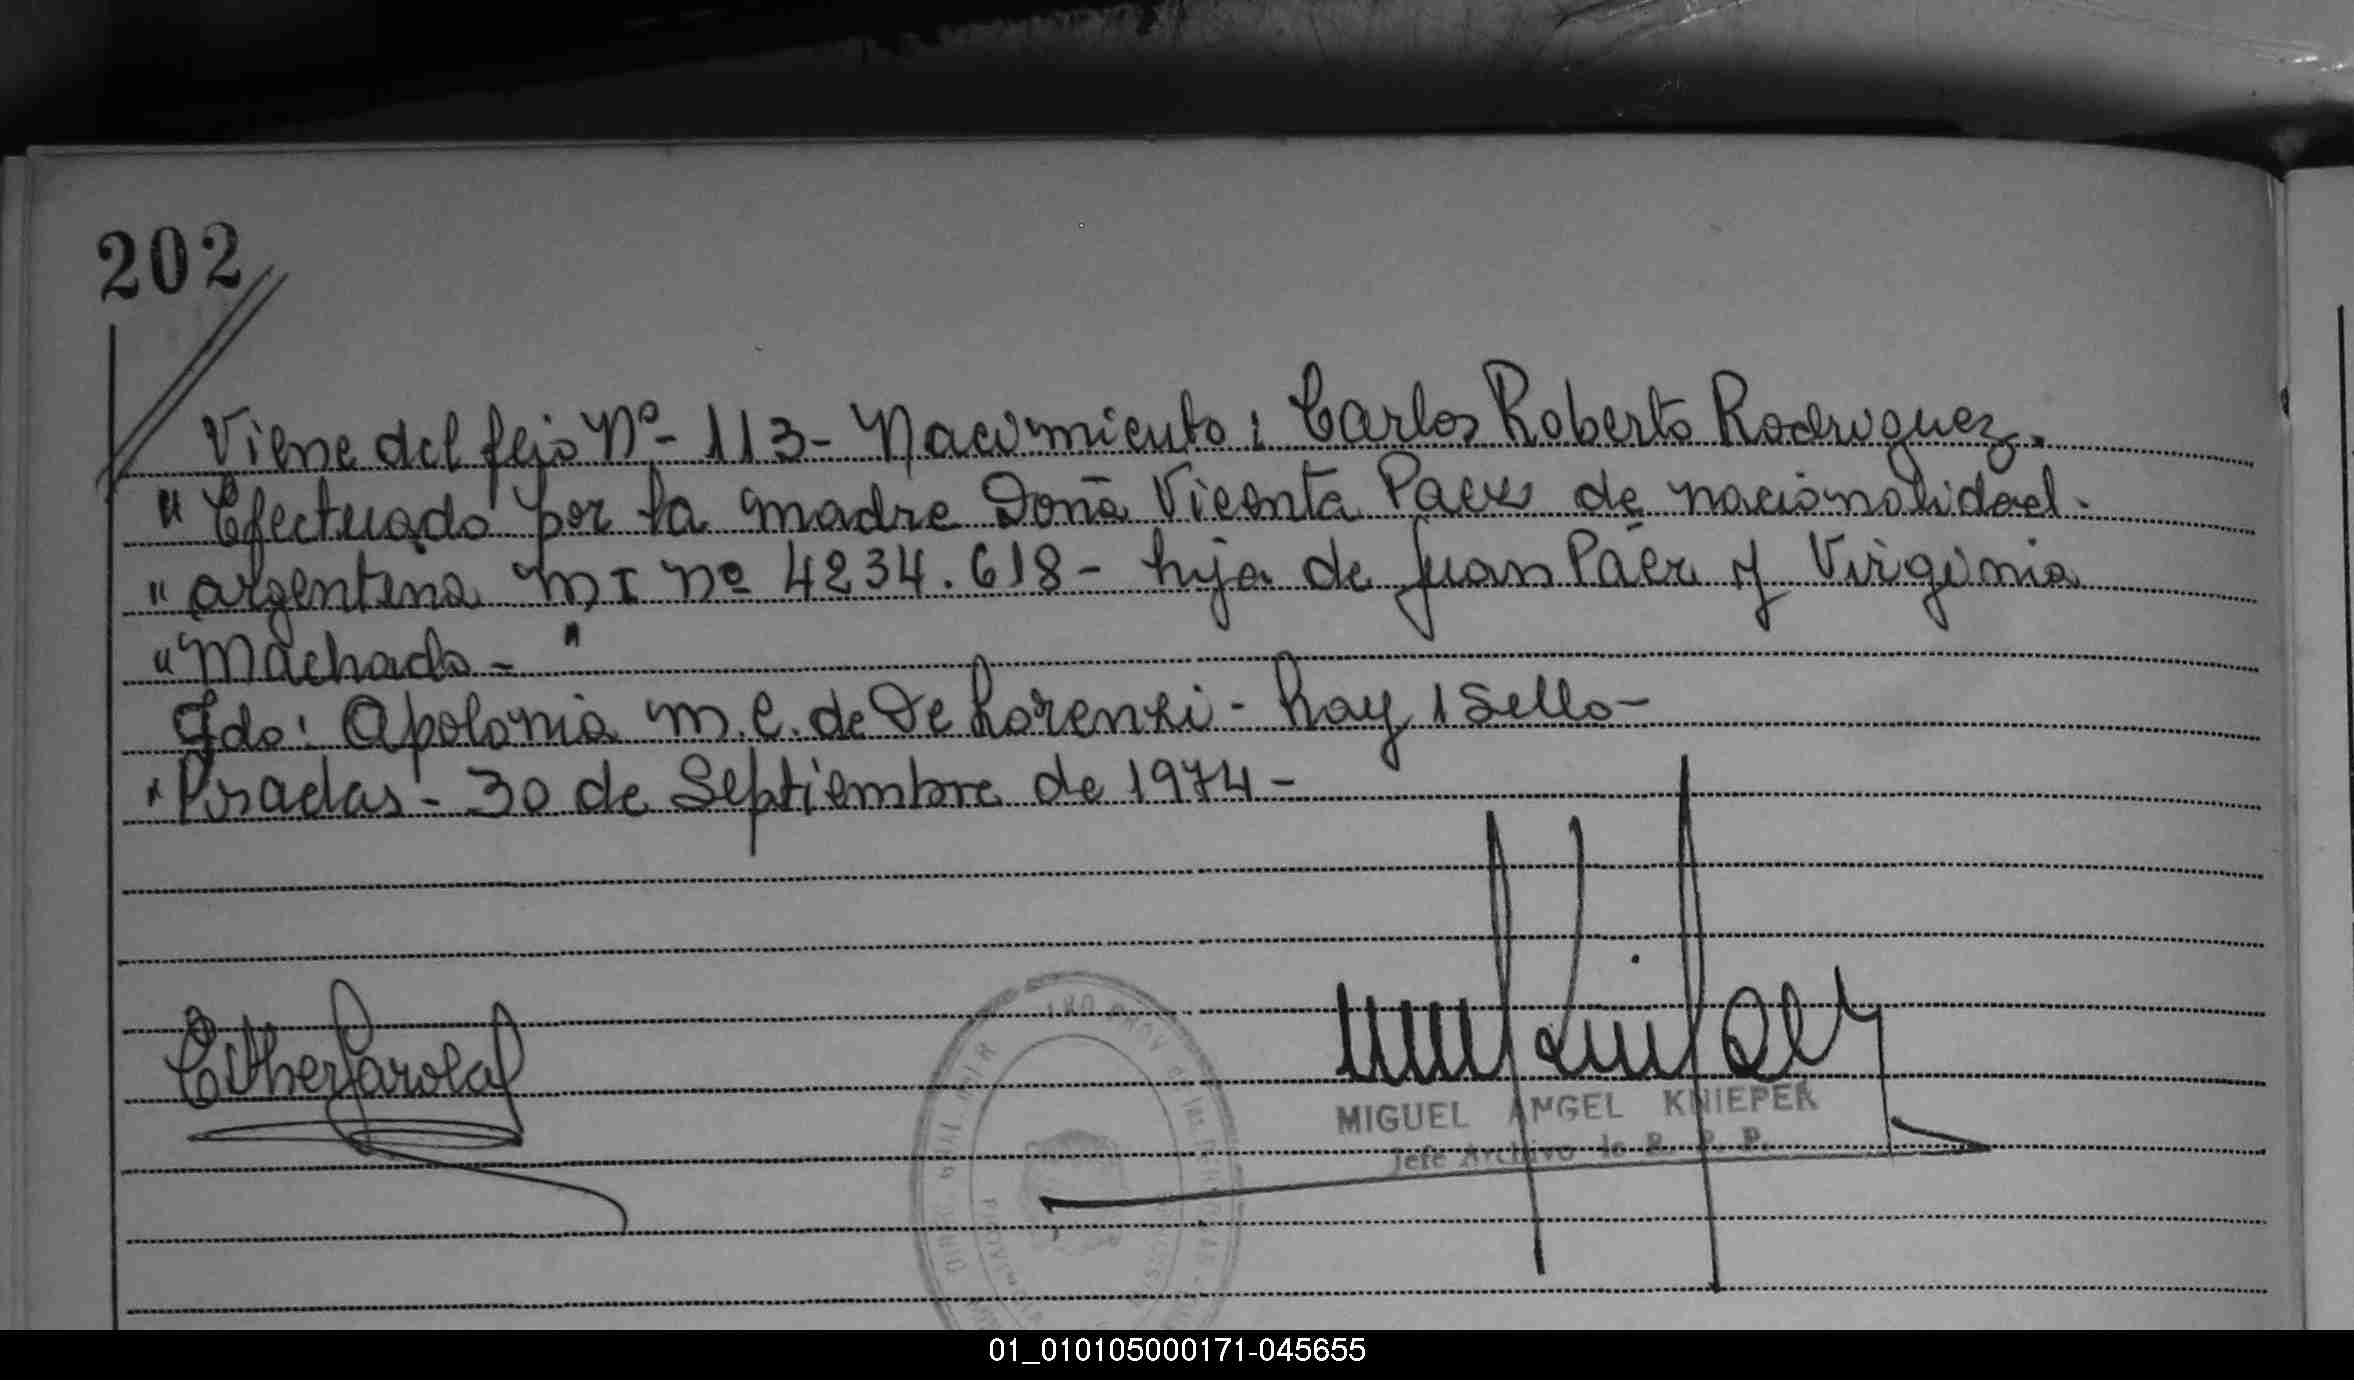 202
Viene del fejo Nº- 113- Nacimiento: Carlos Roberto Rodriguez.
" Efectuado por la madre Doña Vicenta Paez de nacionalidad-
" argentina M I Nº 4234.618- hija de Juan Páez y Virginia
" Machado- "
Fdo: Apolonia M.C. de De Lorenzi- hay 1 Sello-
Posadas- 30 de Septiembre de 1974-
MIGUEL ANGEL KNIEPER
Jefe Archivo de R. P. P.
01_010105000171-045655